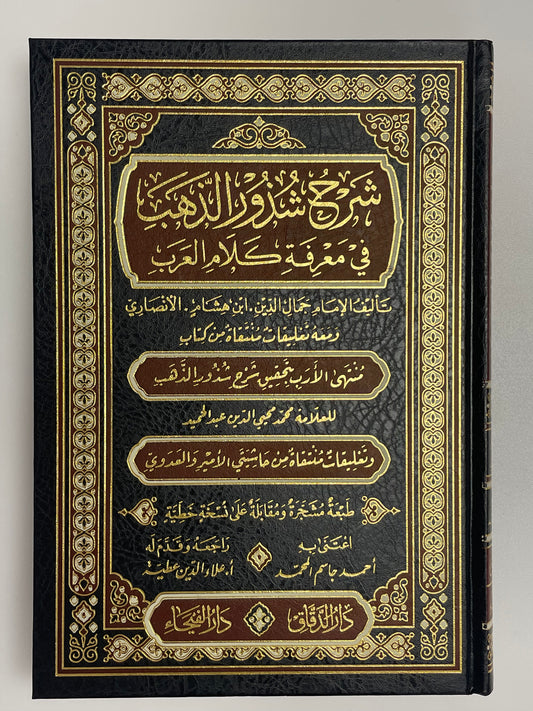 شَرْحُ شُذُورِ الذَّهَبِ
فِي مَعْرِفَةِ كَلَامِ العَرَبِ
تأليف الإمام جمال الدين . ابن هشام . الأنصاري
ومعه تعليقات منتقاة من كتاب
مُنتهى الأرب بتحقيق شرح شذور الذهب
للعلامة محمد محيي الدين عبد الحميد
وتعليقات منتقاة من حاشيتي الأمير والعدوي
طبعة مشجرة ومقابلة على نسخة خطية
اعتنى به
أحمد جاسم المحمد
راجعه وقدم له
أ. علاء الدين عطية
دار الدقاق
دار الفيحاء